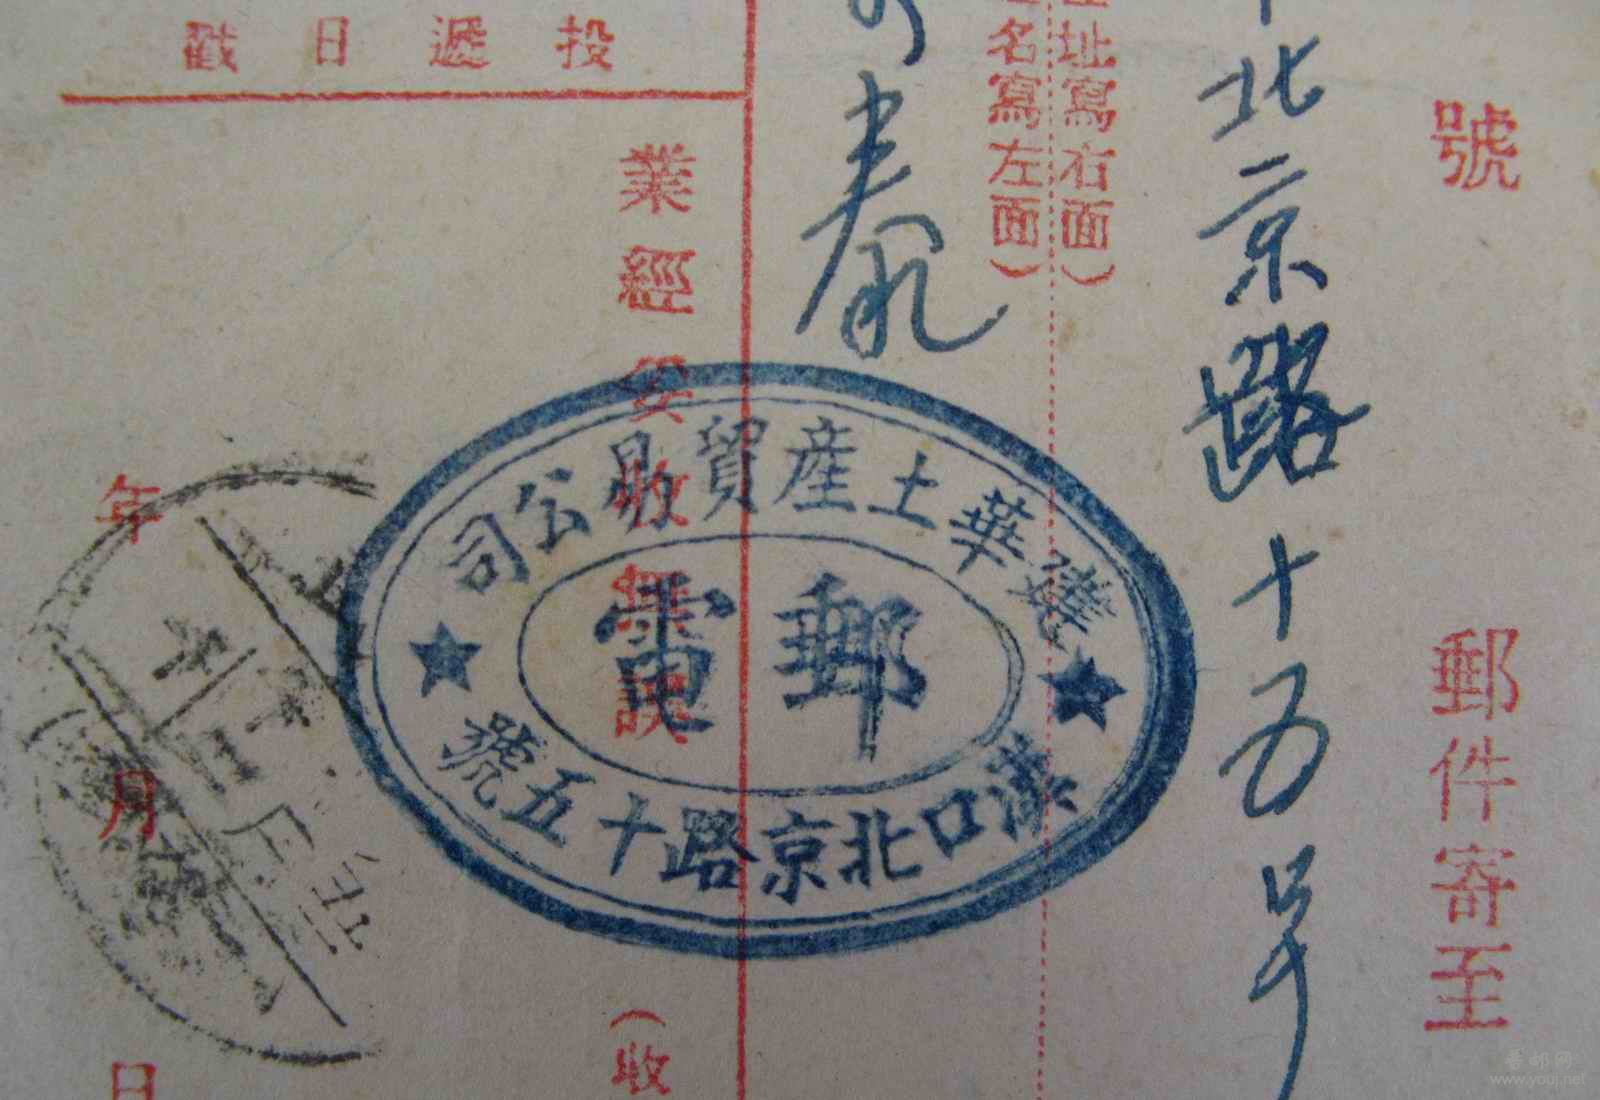 號 郵件寄至
北京路十五号
址寫右面）
名寫左面）
投遞日戳
業經妥收無誤
（收
年 月 日
建華土產貿易公司
郵電
漢口北京路十五號
普邮网
www.youj.net